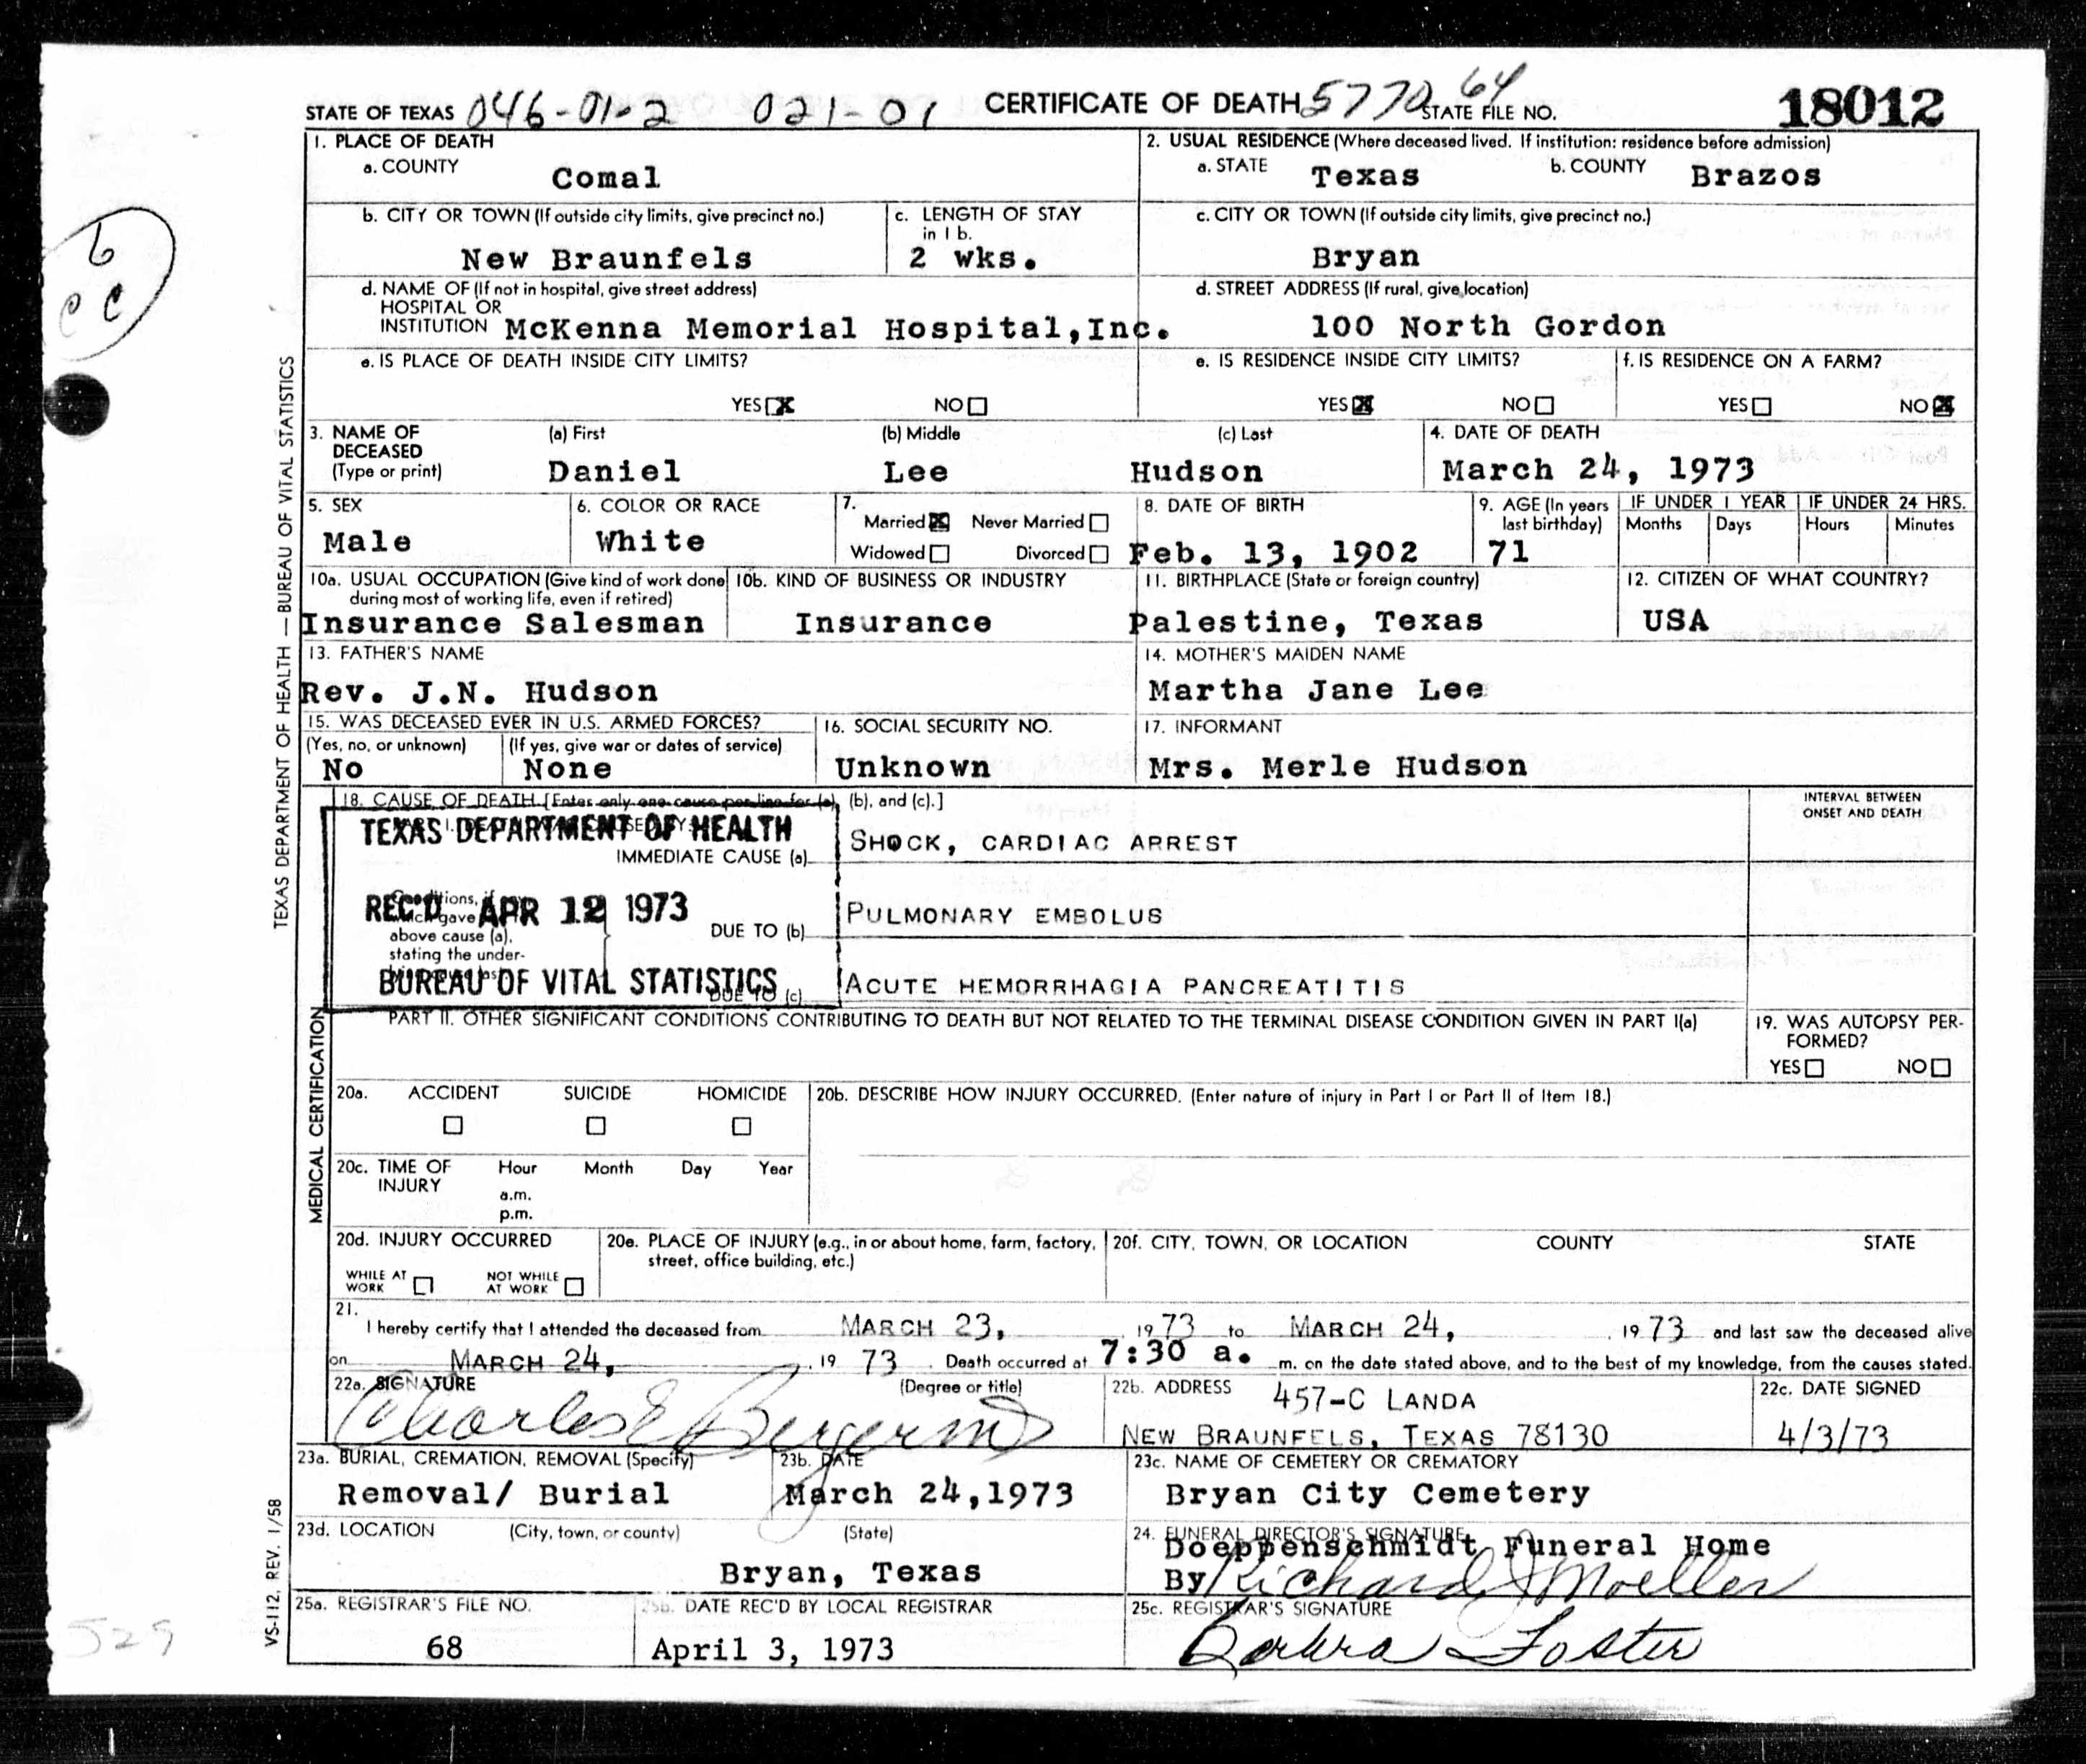 STATE OF TEXAS 046-01-2 021-01 CERTIFICATE OF DEATH 5770 64 STATE FILE NO. 18012
1. PLACE OF DEATH
a. COUNTY Comal
2. USUAL RESIDENCE (Where deceased lived. If institution: residence before admission)
a. STATE Texas b. COUNTY Brazos
b. CITY OR TOWN (If outside city limits, give precinct no.)
New Braunfels
c. LENGTH OF STAY in 1 b.
2 wks.
c. CITY OR TOWN (If outside city limits, give precinct no.)
Bryan
d. NAME OF (If not in hospital, give street address)
HOSPITAL OR
INSTITUTION McKenna Memorial Hospital,Inc.
d. STREET ADDRESS (If rural, give location)
100 North Gordon
e. IS PLACE OF DEATH INSIDE CITY LIMITS?
YES X NO
e. IS RESIDENCE INSIDE CITY LIMITS?
YES X NO
f. IS RESIDENCE ON A FARM?
YES NO X
6
cc
3. NAME OF DECEASED (Type or print)
(a) First (b) Middle (c) Last
Daniel Lee Hudson
4. DATE OF DEATH
March 24, 1973
5. SEX
Male
6. COLOR OR RACE
White
7.
Married X Never Married
Widowed Divorced
8. DATE OF BIRTH
Feb. 13, 1902
9. AGE (In years last birthday)
71
IF UNDER 1 YEAR IF UNDER 24 HRS.
Months Days Hours Minutes
10a. USUAL OCCUPATION (Give kind of work done
during most of working life, even if retired)
Insurance Salesman
10b. KIND OF BUSINESS OR INDUSTRY
Insurance
11. BIRTHPLACE (State or foreign country)
Palestine, Texas
12. CITIZEN OF WHAT COUNTRY?
USA
13. FATHER'S NAME
Rev. J.N. Hudson
14. MOTHER'S MAIDEN NAME
Martha Jane Lee
15. WAS DECEASED EVER IN U.S. ARMED FORCES?
(Yes, no, or unknown) (If yes, give war or dates of service)
No None
16. SOCIAL SECURITY NO.
Unknown
17. INFORMANT
Mrs. Merle Hudson
TEXAS DEPARTMENT OF HEALTH — BUREAU OF VITAL STATISTICS
18. CAUSE OF DEATH [Enter only one cause per line for (a), (b), and (c).]
INTERVAL BETWEEN
ONSET AND DEATH
TEXAS DEPARTMENT OF HEALTH
IMMEDIATE CAUSE (a) SHOCK, CARDIAC ARREST
REC'D APR 12 1973
above cause (a),
stating the under-
DUE TO (b) PULMONARY EMBOLUS
BUREAU OF VITAL STATISTICS
DUE TO (c) ACUTE HEMORRHAGIA PANCREATITIS
PART II. OTHER SIGNIFICANT CONDITIONS CONTRIBUTING TO DEATH BUT NOT RELATED TO THE TERMINAL DISEASE CONDITION GIVEN IN PART I(a)
19. WAS AUTOPSY PER-
FORMED?
YES NO
MEDICAL CERTIFICATION
20a. ACCIDENT SUICIDE HOMICIDE
20b. DESCRIBE HOW INJURY OCCURRED. (Enter nature of injury in Part I or Part II of Item 18.)
20c. TIME OF INJURY Hour Month Day Year
a.m.
p.m.
20d. INJURY OCCURRED
WHILE AT WORK NOT WHILE AT WORK
20e. PLACE OF INJURY (e.g., in or about home, farm, factory,
street, office building, etc.)
20f. CITY, TOWN, OR LOCATION COUNTY STATE
21.
I hereby certify that I attended the deceased from MARCH 23, 1973 to MARCH 24, 1973 and last saw the deceased alive
on MARCH 24, 1973. Death occurred at 7:30 a. m. on the date stated above, and to the best of my knowledge, from the causes stated.
22a. SIGNATURE (Degree or title)
Charles E Berger MD
22b. ADDRESS 457-C LANDA
NEW BRAUNFELS, TEXAS 78130
22c. DATE SIGNED
4/3/73
23a. BURIAL, CREMATION, REMOVAL (Specify)
Removal/ Burial
23b. DATE
March 24,1973
23c. NAME OF CEMETERY OR CREMATORY
Bryan City Cemetery
23d. LOCATION (City, town, or county) (State)
Bryan, Texas
24. FUNERAL DIRECTOR'S SIGNATURE
Doeppenschmidt Funeral Home
By Richard J Moeller
25a. REGISTRAR'S FILE NO.
68
25b. DATE REC'D BY LOCAL REGISTRAR
April 3, 1973
25c. REGISTRAR'S SIGNATURE
Foster
VS-112, REV. 1/58
529